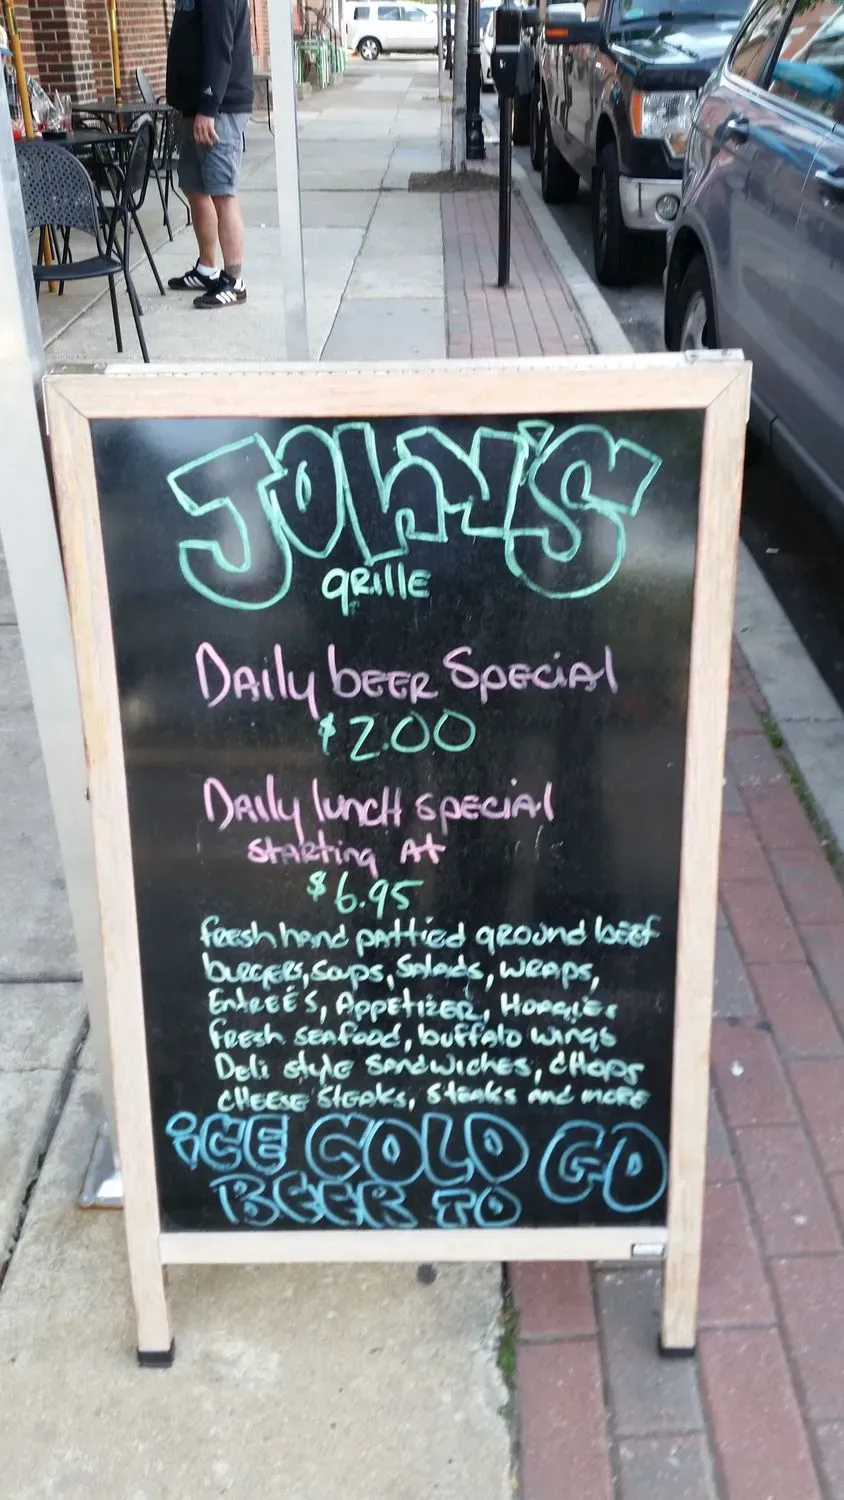 JOHN'S
gRille
Daily beer Special
$2.00
Daily lunch special
starting At
$6.95
fresh hand pattied ground beef
burgers, soups, Salads, wraps,
Entreé's, Appetizer, Hoagies
fresh seafood, buffalo wings
Deli style sandwiches, chops
cheese steaks, steaks and more
iCE COLD GO
BEER TO